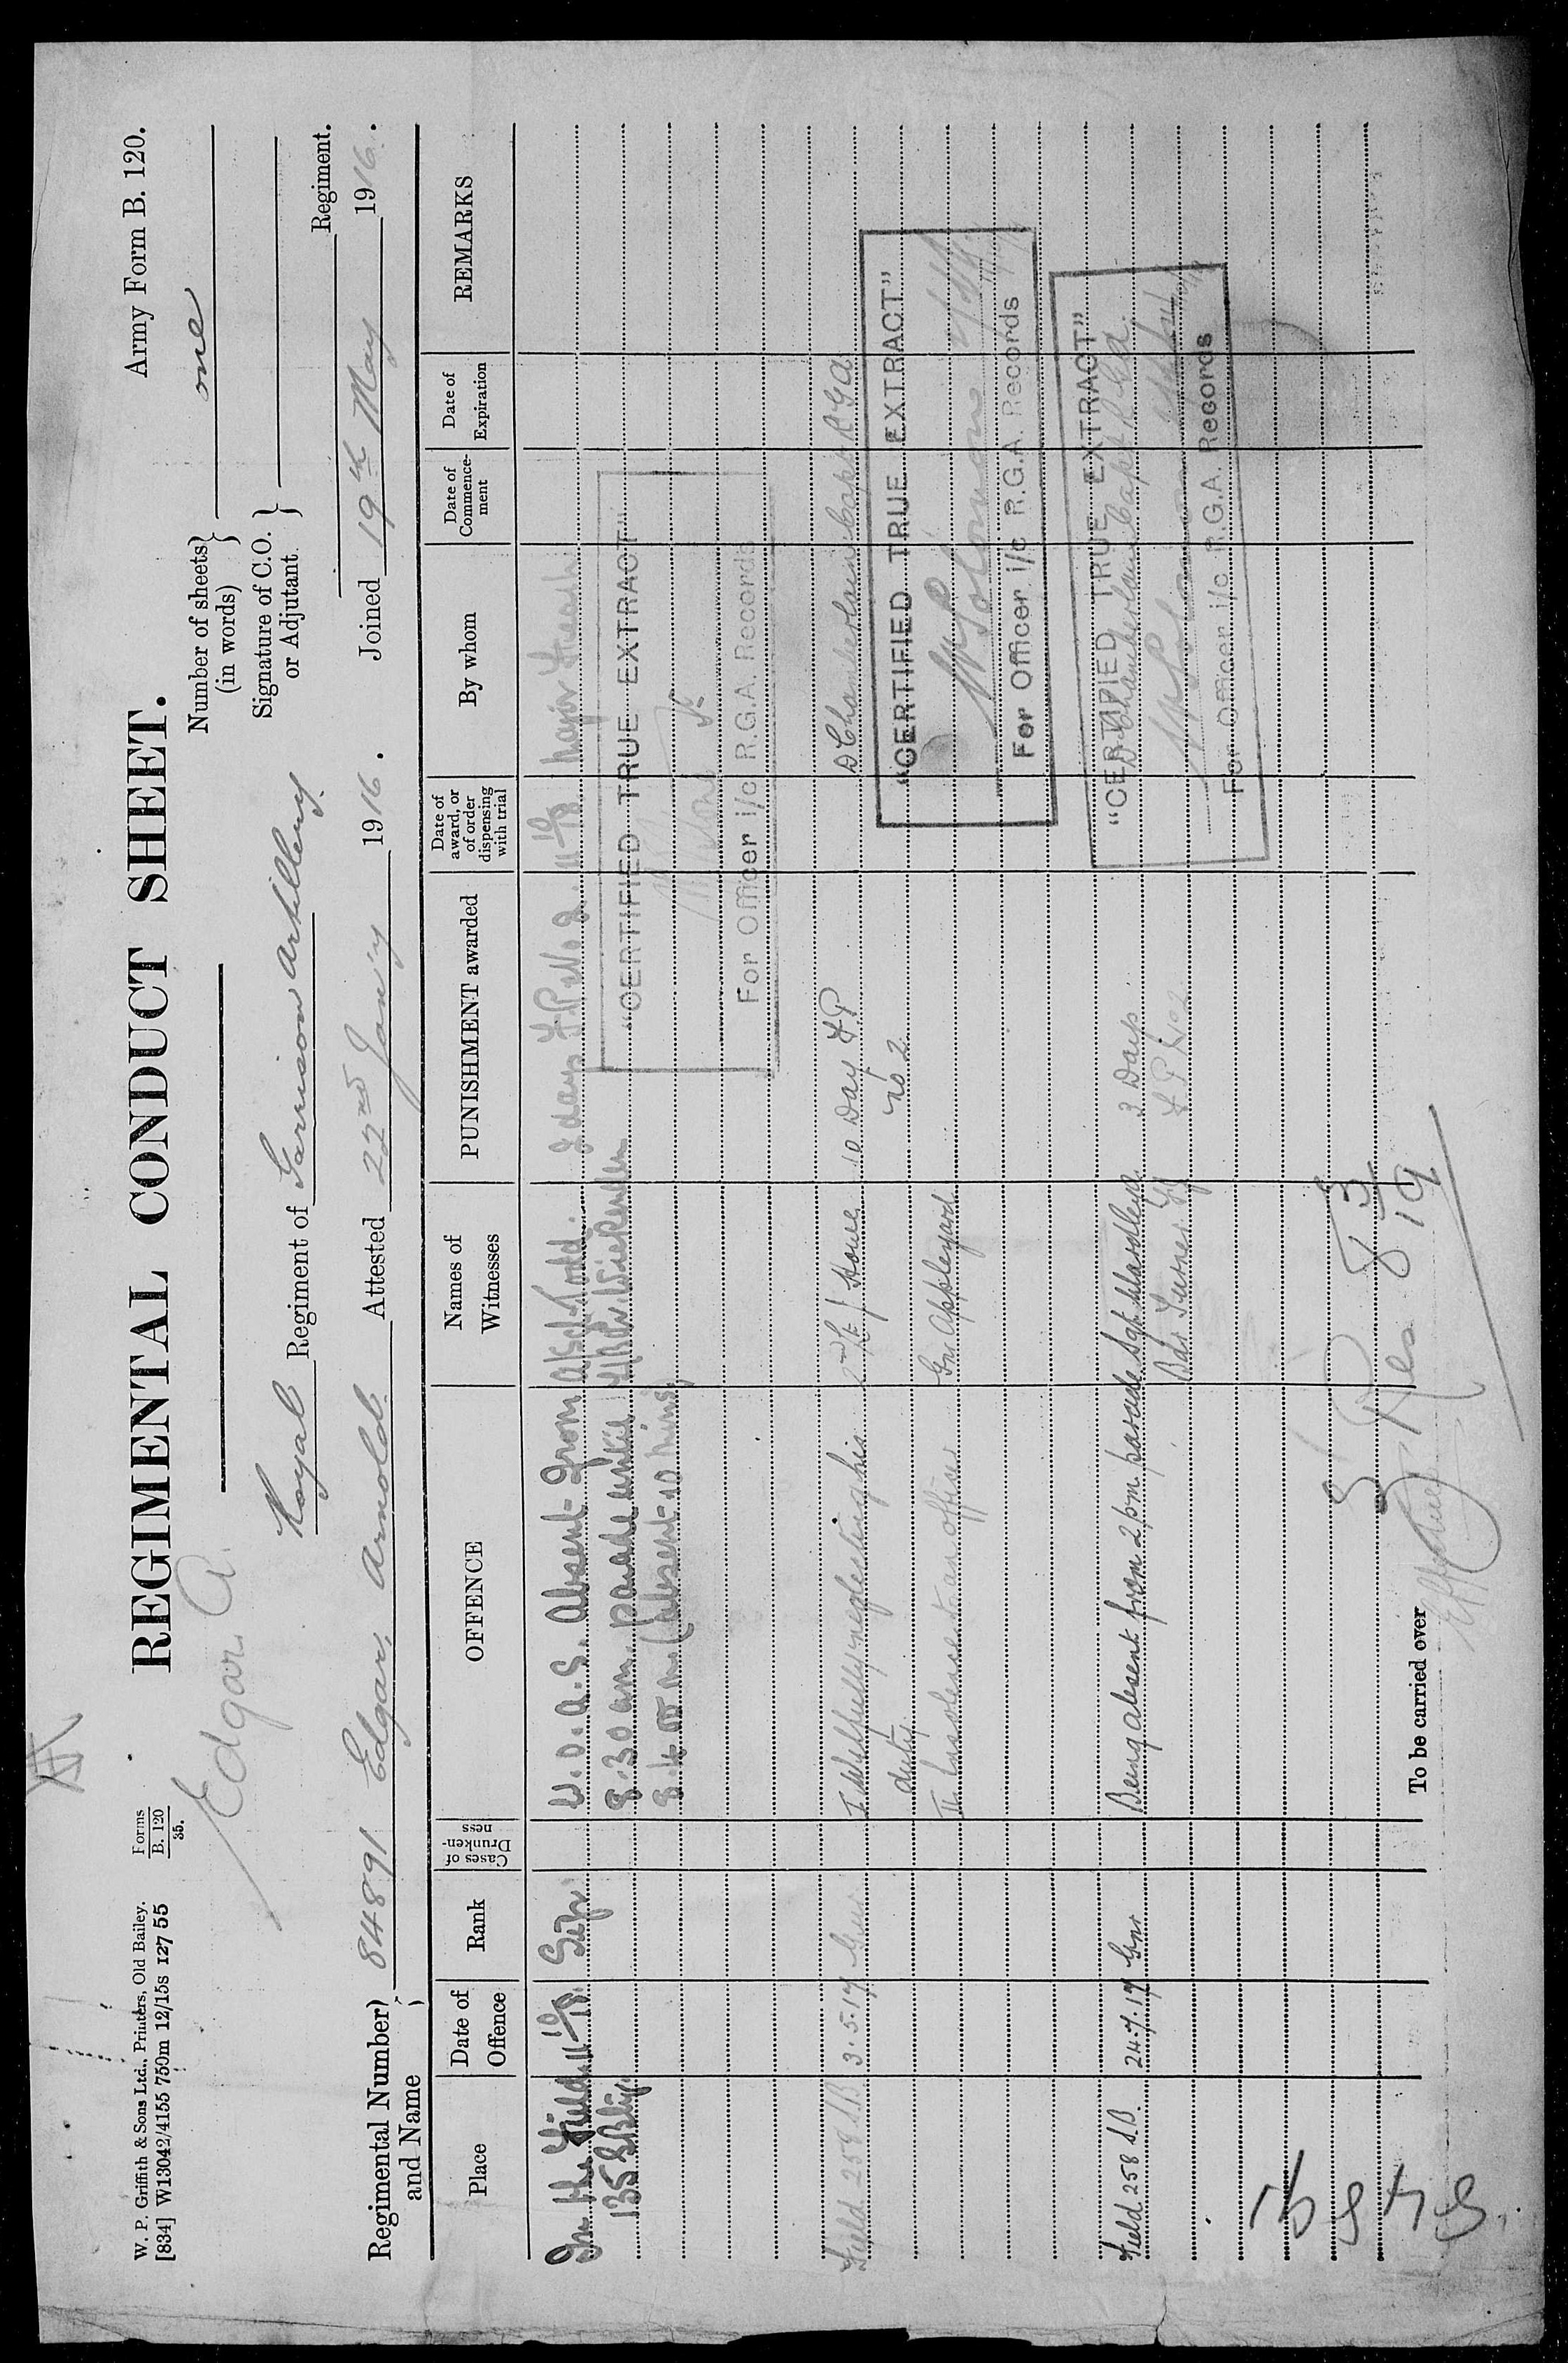 W. P. Griffith & Sons Ltd., Printers, Old Bailey.
[834] W13042/4155 750m 12/15s 127 55
Forms
B. 120
35.
Army Form B. 120.
REGIMENTAL CONDUCT SHEET.
Edgar. A.
Number of sheets (in words) one
Signature of C.O. or Adjutant
Royal Regiment of Garrison Artillery
Regiment.
Regimental Number and Name 84891 Edgar, Arnold. Attested 22nd Jan'y 1916. Joined 19th May 1916.
Place
Date of Offence
Rank
Cases of Drunkenness
OFFENCE
Names of Witnesses
PUNISHMENT awarded
Date of award, or of order dispensing with trial
By whom
Date of Commencement
Date of Expiration
REMARKS
In the Field
135
W.O.A.S. Absent from
8.30 am. parade until
(absent 10 mins)
Todd.
days F.P. No. 2.
Major
"CERTIFIED TRUE EXTRACT"
For Officer i/c R.G.A. Records
Field 258 S.B 3.5.17 Gnr
I Wilfully neglecting his
duty.
II Insolence to an officer
2nd Lt Howe
Gnr Appleyard
10 Day F.P
No 2
D Chamberlain Capt RGA
"CERTIFIED TRUE EXTRACT"
For Officer i/c R.G.A. Records
Field 258 S.B. 24.7.17 Gnr
Being absent from 2 pm. parade
Sgt Wardley
Bdr Turner
3 Days
F.P. No 2
D Chamberlain Capt RGA.
"CERTIFIED TRUE EXTRACT"
For Officer i/c R.G.A. Records
To be carried over